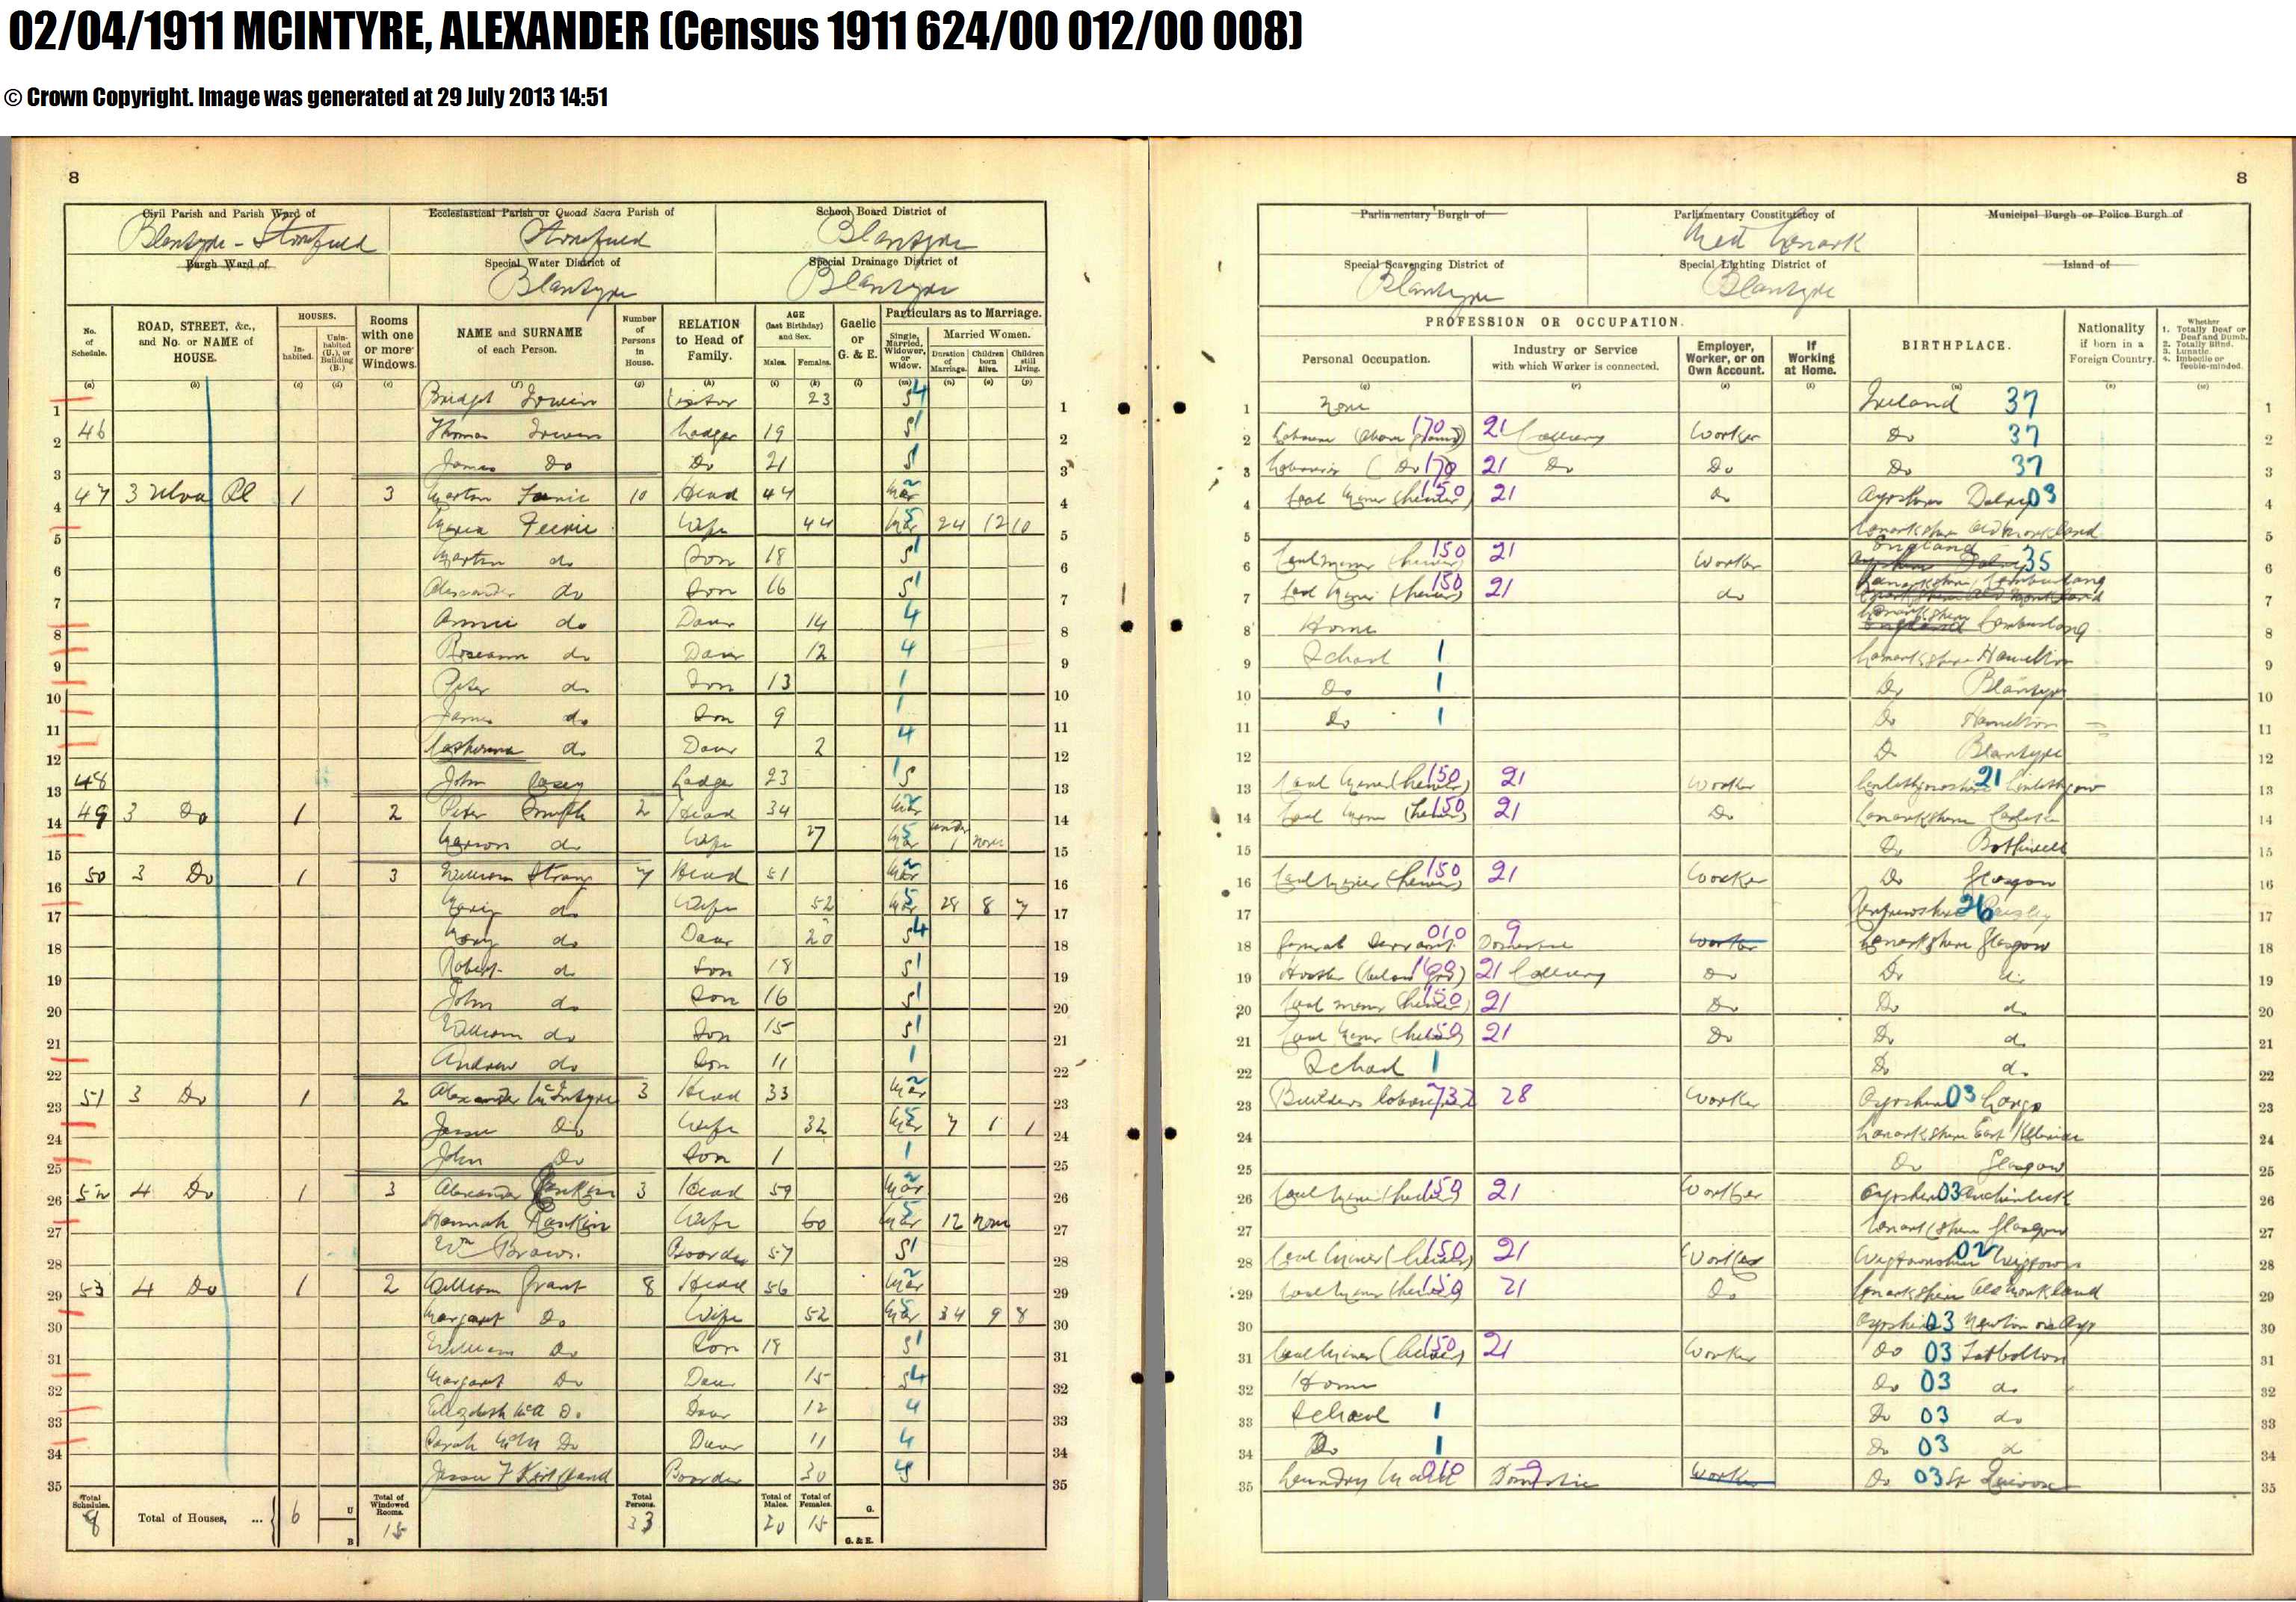 02/04/1911 MCINTYRE, ALEXANDER (Census 1911 624/00 012/00 008)
© Crown Copyright. Image was generated at 29 July 2013 14:51
8
Civil Parish and Parish Ward of
Blantyre - Stonefield
Ecclesiastical Parish or Quoad Sacra Parish of
Stonefield
School Board District of
Blantyre
Burgh Ward of
Special Water District of
Blantyre
Special Drainage District of
Blantyre
No. of Schedule. (a)
ROAD, STREET, &c., and No. or NAME of HOUSE. (b)
HOUSES. Inhabited. (c) Uninhabited (U.), or Building (B.) (d)
Rooms with one or more Windows. (e)
NAME and SURNAME of each Person. (f)
Number of Persons in House. (g)
RELATION to Head of Family. (h)
AGE (last Birthday) and Sex. Males. (i) Females. (k)
Gaelic or G. & E. (l)
Particulars as to Marriage. Single, Married, Widower, or Widow. (m)
Married Women. Duration of Marriage. (n) Children born Alive. (o) Children still Living. (p)
1 Bridget 23 S 4
2 46 Thomas Lodger 19 S 1
3 James Do Do 21 S 1
4 47 3 Pl 1 3 10 Head 44 Mar 2
5 Wife 44 Mar 5 24 12 10
6 Martin do Son 18 S 1
7 Alexander do Son 16 S 1
8 Annie do Daur 14 4
9 Roseann do Daur 12 4
10 Peter do Son 13 1
11 James do Son 9 1
12 Catherine do Daur 2 4
13 48 John Casey Lodger 23 S 1
14 49 3 Do 1 2 Peter Smyth 2 Head 34 Mar 2
15 Marion do Wife 27 Mar 5 under 1 none
16 50 3 Do 1 3 William Strang 7 Head 51 Mar 2
17 do Wife 52 Mar 5 28 8 7
18 Mary do Daur 20 S 4
19 Robert do Son 18 S 1
20 John do Son 16 S 1
21 William do Son 15 S 1
22 Andrew do Son 11 1
23 51 3 Do 1 2 Alexander McIntyre 3 Head 33 Mar 2
24 Jessie Do Wife 32 Mar 5 7 1 1
25 John Do Son 1 1
26 52 4 Do 1 3 Alexander Rankin 3 Head 59 Mar 2
27 Hannah Rankin Wife 60 Mar 5 12 None
28 Wm Brown Boarder 57 S 1
29 53 4 Do 1 2 William Grant 8 Head 56 Mar 2
30 Margaret Do Wife 52 Mar 5 34 9 8
31 William Do Son 18 S 1
32 Margaret Do Daur 15 S 4
33 Elizabeth McA Do Daur 12 4
34 Sarah Do Daur 11 4
35 Jessie F Kirkland Boarder 30 4
Total Schedules. 8
Total of Houses, ... 6 U B
Total of Windowed Rooms. 15
Total Persons. 33
Total of Males. 20
Total of Females. 15
G.
G. & E.
8
Parliamentary Burgh of
Parliamentary Constituency of
Mid Lanark
Municipal Burgh or Police Burgh of
Special Scavenging District of
Blantyre
Special Lighting District of
Blantyre
Island of
PROFESSION OR OCCUPATION.
Personal Occupation. (q)
Industry or Service with which Worker is connected. (r)
Employer, Worker, or on Own Account. (s)
If Working at Home. (t)
BIRTHPLACE. (u)
Nationality if born in a Foreign Country. (v)
Whether 1. Totally Deaf or Deaf and Dumb. 2. Totally Blind. 3. Lunatic. 4. Imbecile or feeble-minded. (w)
1 None Ireland 37
2 Labourer (above ground) 170 21 Colliery Worker Do 37
3 Labourer (Do) 170 21 Do Do Do 37
4 Coal Miner (hewer) 150 21 do Ayrshire Dalry 03
5 Lanarkshire Old Monkland
6 Coal Miner (hewer) 150 21 Worker England Ayrshire Dalry 35
7 Coal Miner (hewer) 150 21 do Lanarkshire Cambuslang
8 Home Lanarkshire England Cambuslang
9 School 1 Lanarkshire Hamilton
10 Do 1 Do Blantyre
11 Do 1 Do Hamilton
12 Do Blantyre
13 Coal Miner (hewer) 150 21 Worker Linlithgowshire 21 Linlithgow
14 Coal Miner (hewer) 150 21 Do Lanarkshire Carluke
15 Do Bothwell
16 Coal Miner (hewer) 150 21 Worker Do Glasgow
17 Renfrewshire 26 Paisley
18 General Servant 010 9 Domestic Worker Lanarkshire Glasgow
19 160 21 Colliery Do Do do
20 Coal Miner (hewer) 150 21 Do Do do
21 Coal Miner (hewer) 150 21 Do Do do
22 School 1 Do do
23 Builders labourer 732 28 Worker Ayrshire 03 Largs
24 Lanarkshire East Kilbride
25 Do Glasgow
26 Coal Miner (hewer) 150 21 Worker Ayrshire 03 Auchinleck
27 Lanarkshire Glasgow
28 Coal Miner (hewer) 150 21 Worker Wigtownshire 02 Wigtown
29 Coal Miner (hewer) 150 21 Do Lanarkshire Old Monkland
30 Ayrshire 03 Newton on Ayr
31 Coal Miner (hewer) 150 21 Worker Do 03 Tarbolton
32 Home Do 03 do
33 School 1 Do 03 do
34 Do 1 Do 03 do
35 Laundry Maid 010 9 Domestic Worker Do 03 St Quivox